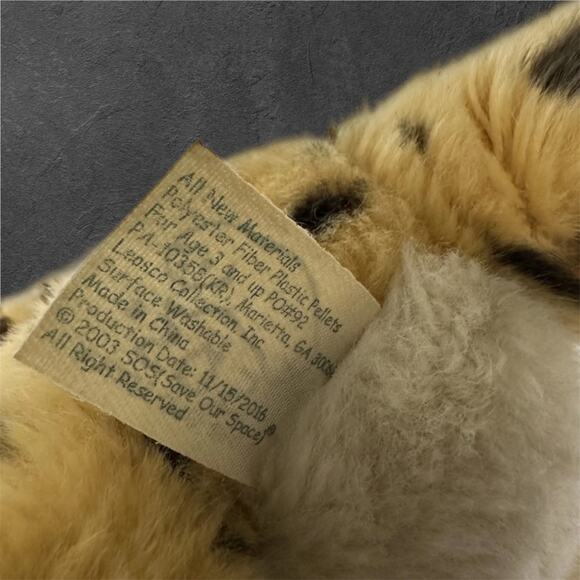 All New Materials
Polyester Fiber Plastic Pellets
For Age 3 and up PO#92
PA-10356(KR), Marietta, GA 3006
Leosco Collection, Inc.
Surface Washable
Made in China
Production Date: 11/15/2016
© 2003 SOS(Save Our Space)®
All Right Reserved